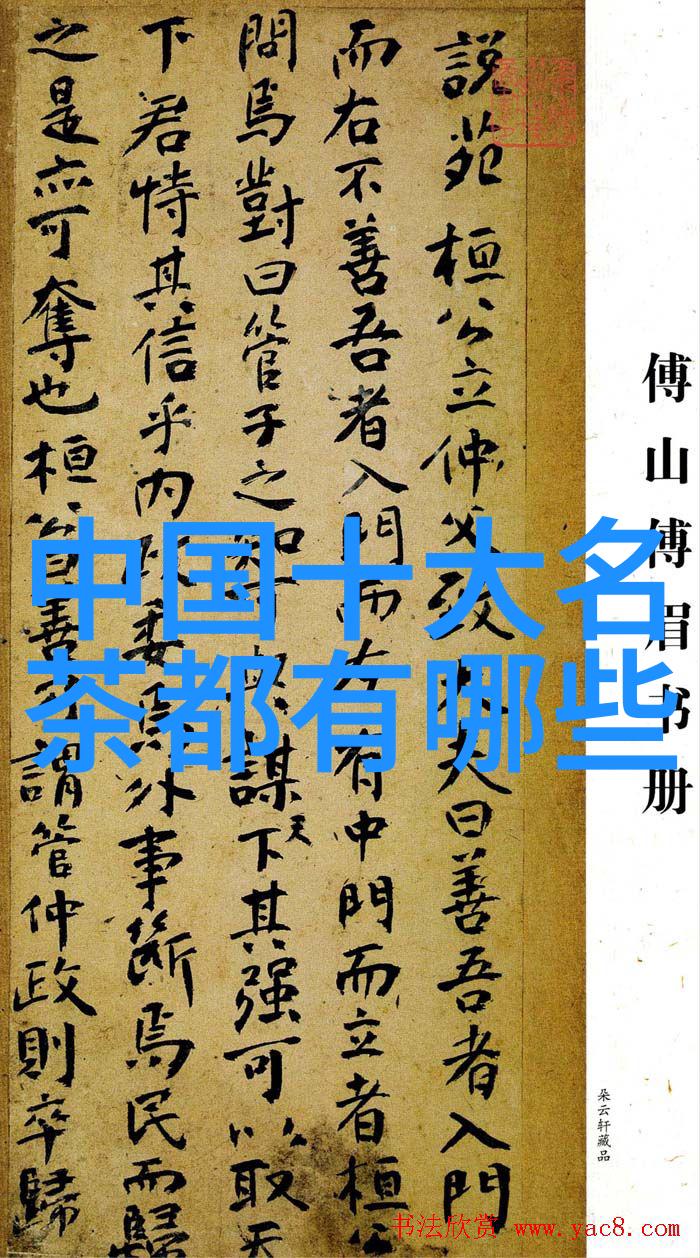 说苑 桓公立仲父致大夫曰善吾者入門
而右不善吾者入門而左有中門而立者桓公
問焉對曰管子之知可與謀天下其强可以取天
下君恃其信乎内政委焉外事斷焉民而歸
之是亦可奪也桓公曰善乃謂管仲政則卒歸
傅山傅眉书册
朵云轩藏品
中国十大名
茶都有哪些
书法欣赏 www.yac8.com